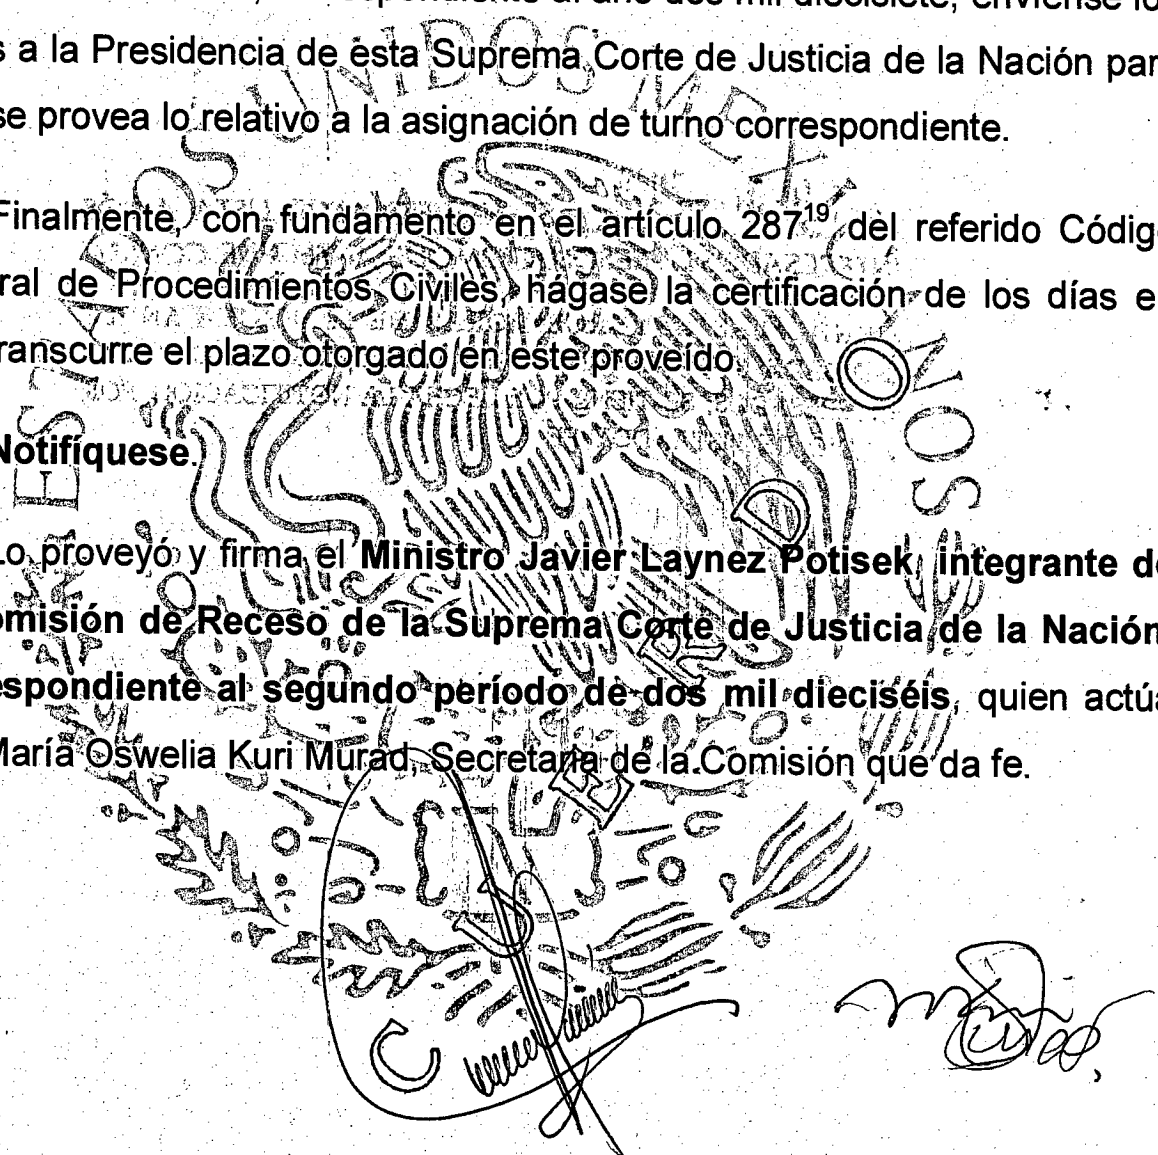 dos mil diecisiete, envíense
a la Presidencia de esta Suprema Corte de Justicia de la Nación par
se provea lo relativo a la asignación de turno correspondiente.
Finalmente, con fundamento en el artículo 287¹⁹ del referido Códig
ral de Procedimientos Civiles, hágase la certificación de los días e
ranscurre el plazo otorgado en este proveído.
Notifíquese.
Lo proveyó y firma el Ministro Javier Laynez Potisek, integrante de
omisión de Receso de la Suprema Corte de Justicia de la Nación
espondiente al segundo período de dos mil dieciséis, quien actúa
María Oswelia Kuri Murad, Secretaria de la Comisión que da fe.
ESTADOS UNIDOS MEXICANOS
ACUERDO